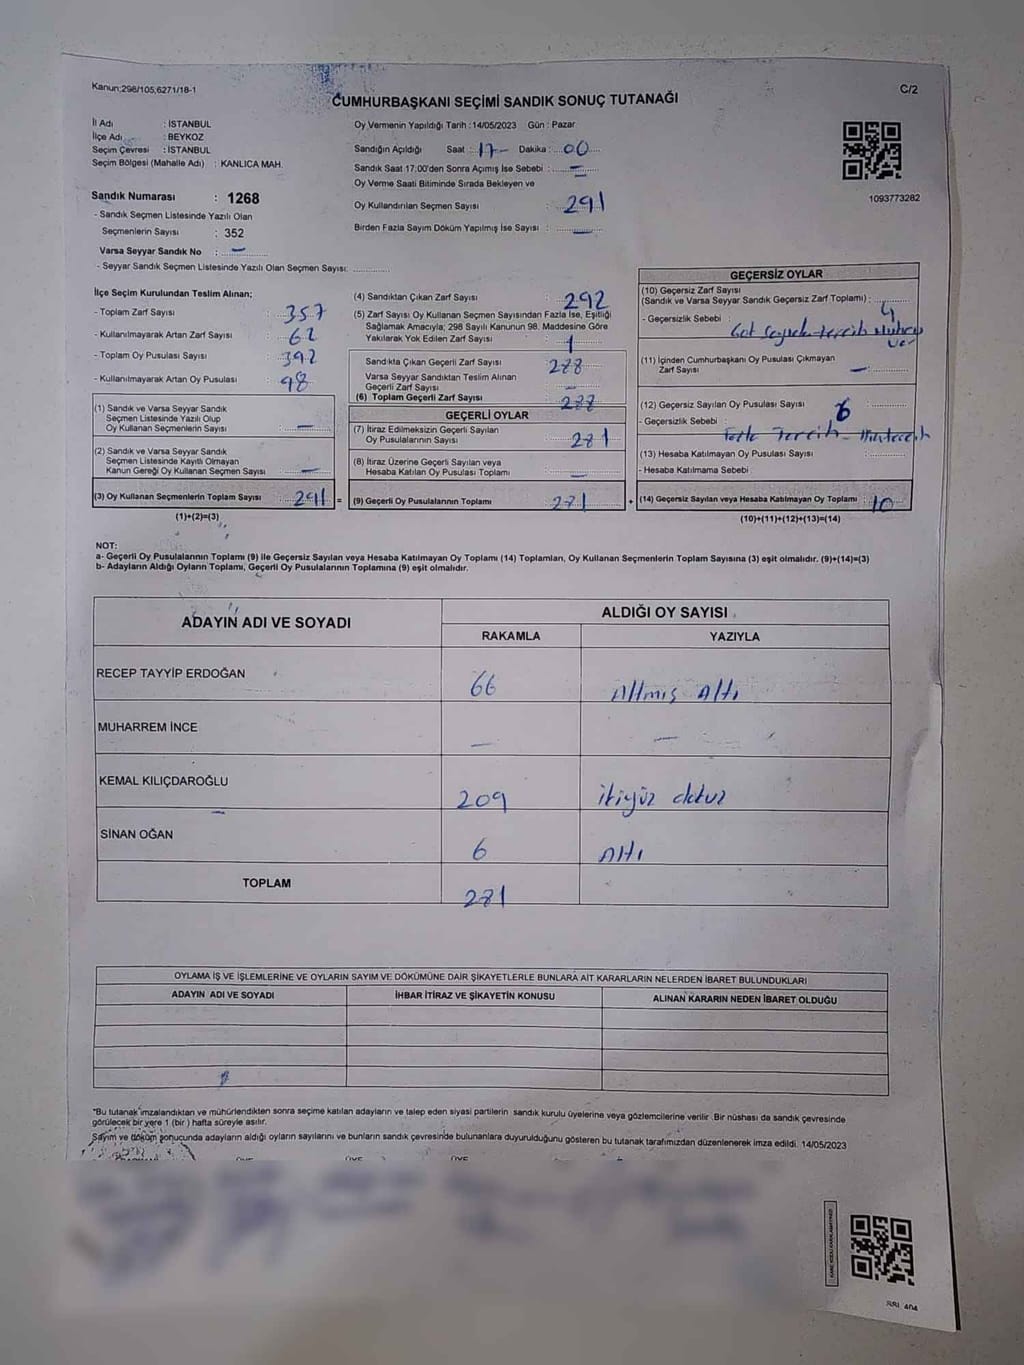 Kanun;298/105,6271/18-1
C/2
CUMHURBAŞKANI SEÇİMİ SANDIK SONUÇ TUTANAĞI
İl Adı : İSTANBUL
İlçe Adı : BEYKOZ
Seçim Çevresi : İSTANBUL
Seçim Bölgesi (Mahalle Adı) : KANLICA MAH.
Oy Vermenin Yapıldığı Tarih :14/05/2023 Gün : Pazar
Sandığın Açıldığı Saat : 17 Dakika : 00
Sandık Saat 17:00'den Sonra Açımış İse Sebebi : –
Oy Verme Saati Bitiminde Sırada Bekleyen ve
Oy Kullandırılan Seçmen Sayısı : 291
Birden Fazla Sayım Döküm Yapılmış İse Sayısı : –
1093773282
Sandık Numarası : 1268
- Sandık Seçmen Listesinde Yazılı Olan
Seçmenlerin Sayısı : 352
Varsa Seyyar Sandık No : –
- Seyyar Sandık Seçmen Listesinde Yazılı Olan Seçmen Sayısı:
İlçe Seçim Kurulundan Teslim Alınan;
- Toplam Zarf Sayısı : 357
- Kullanılmayarak Artan Zarf Sayısı : 62
- Toplam Oy Pusulası Sayısı : 392
- Kullanılmayarak Artan Oy Pusulası : 98
(1) Sandık ve Varsa Seyyar Sandık
Seçmen Listesinde Yazılı Olup
Oy Kullanan Seçmenlerin Sayısı : –
(2) Sandık ve Varsa Seyyar Sandık
Seçmen Listesinde Kayıtlı Olmayan
Kanun Gereği Oy Kullanan Seçmen Sayısı : –
(3) Oy Kullanan Seçmenlerin Toplam Sayısı : 291 =
(1)+(2)=(3)
(4) Sandıktan Çıkan Zarf Sayısı : 292
(5) Zarf Sayısı Oy Kullanan Seçmen Sayısından Fazla İse, Eşitliği
Sağlamak Amacıyla; 298 Sayılı Kanunun 98. Maddesine Göre
Yakılarak Yok Edilen Zarf Sayısı : 1
Sandıkta Çıkan Geçerli Zarf Sayısı : 288
Varsa Seyyar Sandıktan Teslim Alınan
Geçerli Zarf Sayısı : –
(6) Toplam Geçerli Zarf Sayısı : 288
GEÇERLİ OYLAR
(7) İtiraz Edilmeksizin Geçerli Sayılan
Oy Pusulalarının Sayısı : 281
(8) İtiraz Üzerine Geçerli Sayılan veya
Hesaba Katılan Oy Pusulası Toplamı : –
(9) Geçerli Oy Pusulalarının Toplamı : 281 +
GEÇERSİZ OYLAR
(10) Geçersiz Zarf Sayısı
(Sandık ve Varsa Seyyar Sandık Geçersiz Zarf Toplamı) : 4
- Geçersizlik Sebebi :
(11) İçinden Cumhurbaşkanı Oy Pusulası Çıkmayan
Zarf Sayısı : –
(12) Geçersiz Sayılan Oy Pusulası Sayısı : 6
- Geçersizlik Sebebi : Fazla Tercih
(13) Hesaba Katılmayan Oy Pusulası Sayısı :
- Hesaba Katılmama Sebebi :
(14) Geçersiz Sayılan veya Hesaba Katılmayan Oy Toplamı : 10
(10)+(11)+(12)+(13)=(14)
NOT:
a- Geçerli Oy Pusulalarının Toplamı (9) ile Geçersiz Sayılan veya Hesaba Katılmayan Oy Toplamı (14) Toplamları, Oy Kullanan Seçmenlerin Toplam Sayısına (3) eşit olmalıdır. (9)+(14)=(3)
b- Adayların Aldığı Oyların Toplamı, Geçerli Oy Pusulalarının Toplamına (9) eşit olmalıdır.
ADAYIN ADI VE SOYADI
ALDIĞI OY SAYISI
RAKAMLA YAZIYLA
RECEP TAYYİP ERDOĞAN 66 Altmış Altı
MUHARREM İNCE – –
KEMAL KILIÇDAROĞLU 209 ikiyüz dokuz
SİNAN OĞAN 6 Altı
TOPLAM 281
OYLAMA İŞ VE İŞLEMLERİNE VE OYLARIN SAYIM VE DÖKÜMÜNE DAİR ŞİKAYETLERLE BUNLARA AİT KARARLARIN NELERDEN İBARET BULUNDUKLARI
ADAYIN ADI VE SOYADI İHBAR İTİRAZ VE ŞİKAYETİN KONUSU ALINAN KARARIN NEDEN İBARET OLDUĞU
*Bu tutanak imzalandıktan ve mühürlendikten sonra seçime katılan adayların ve talep eden siyasi partilerin sandık kurulu üyelerine veya gözlemcilerine verilir. Bir nüshası da sandık çevresinde
görülecek bir yere 1 (bir) hafta süreyle asılır.
Sayım ve döküm sonucunda adayların aldığı oyların sayılarını ve bunların sandık çevresinde bulunanlara duyurulduğunu gösteren bu tutanak tarafımızdan düzenlenerek imza edildi. 14/05/2023
ÜYE ÜYE ÜYE